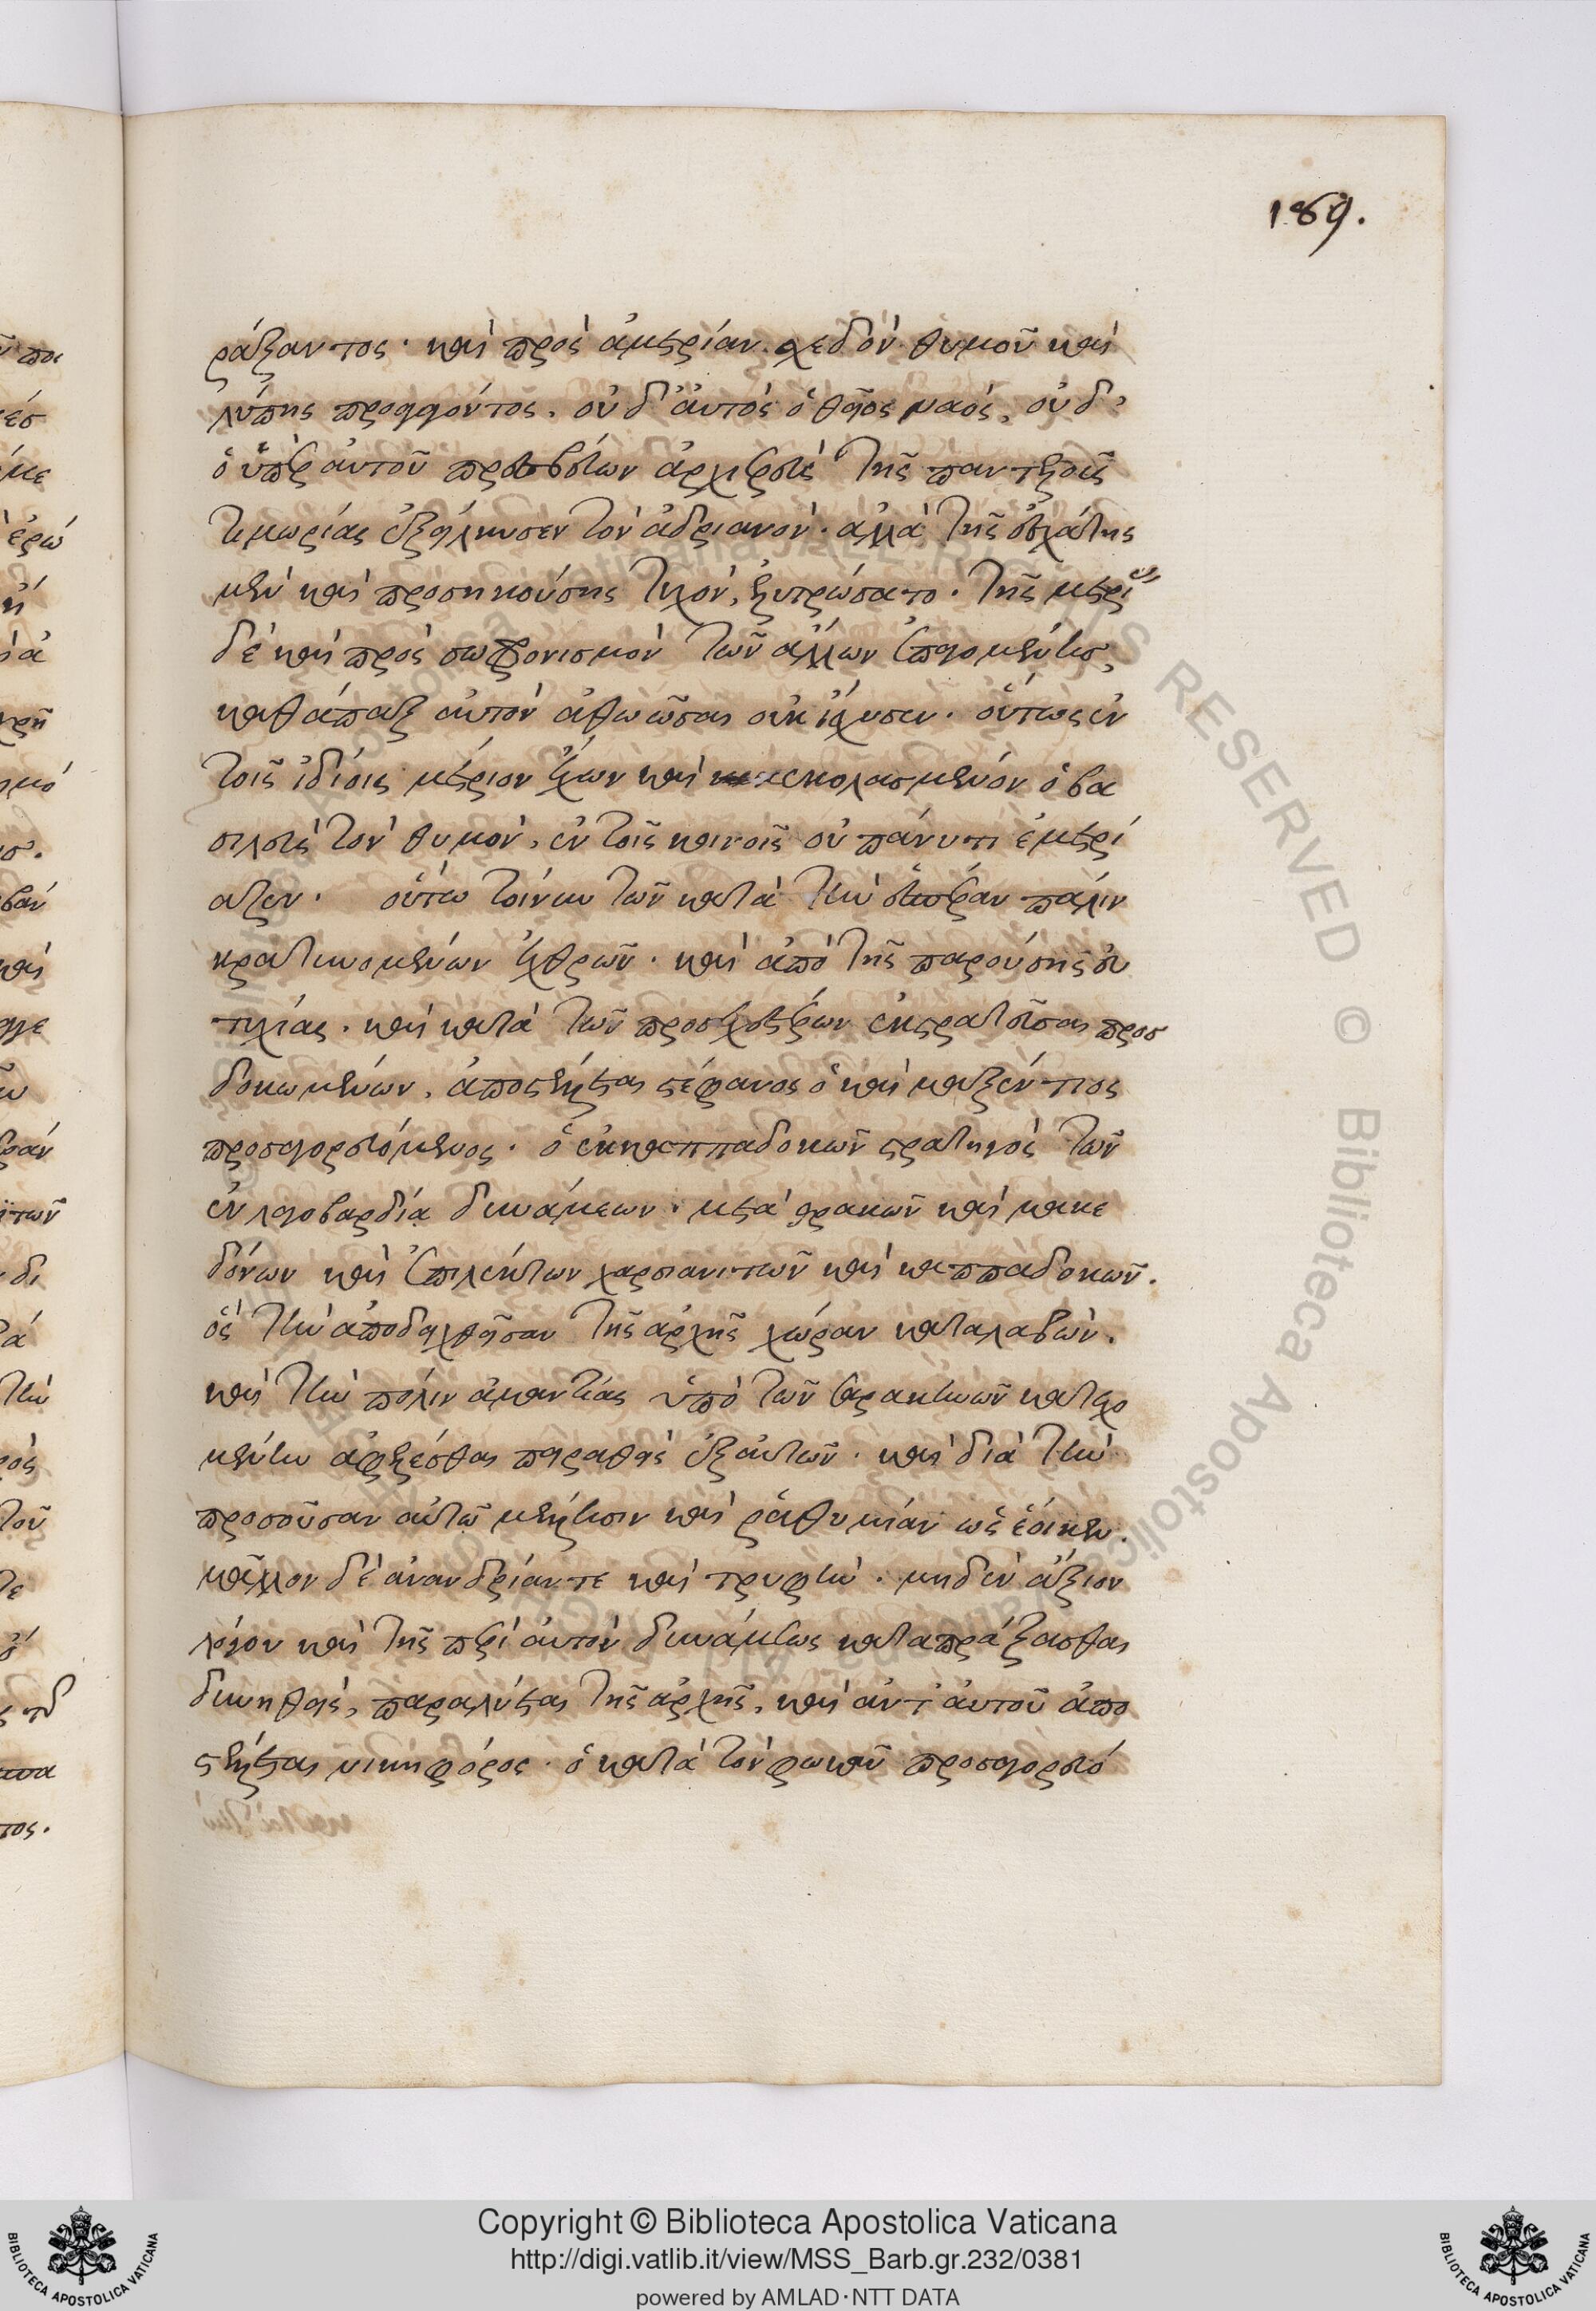 189.
ράξαντος. καὶ πρὸς ἀμετρίαν σχεδὸν θυμοῦ καὶ
λύπης προαχθέντος. οὐδ' αὐτὸς ὁ θεῖος ναός, οὐδ'
ὁ ὑπὲρ αὐτοῦ πρεσβεύων ἀρχιερεὺς τῆς παντελοῦς
τιμωρίας ἐξείλκυσεν τὸν ἀδριανόν. ἀλλὰ τῆς ἐσχάτης
μὲν καὶ προσηκούσης τυχὸν, ἐλυτρώσατο. τῆς μετρίας
δὲ καὶ πρὸς σωφρονισμὸν τῶν ἄλλων ἐπαγομένης,
καθάπαξ αὐτὸν ἀθωῶσαι οὐκ ἴσχυσεν. οὕτως ἐν
τοῖς ἰδίοις μέτριον ἔχων καὶ κεκολασμένον ὁ βα
σιλεὺς τὸν θυμὸν, ἐν τοῖς κοινοῖς οὐ πάνυ τι ἐμετρί
αζεν. οὕτω τοίνυν τῶν κατὰ τὴν ἑσπέραν πάλιν
κρατυνομένων ἐχθρῶν. καὶ ἀπὸ τῆς παρούσης εὐ
τυχίας. καὶ κατὰ τῶν προσεχεστέρων ἐκστρατεῦσαι προσ
δοκωμένων, ἀποστέλλεται στέφανος ὁ καὶ μαξέντιος
προσαγορευόμενος. ὁ ἐκ καππαδοκῶν στρατηγὸς τῶν
ἐν λαγοβαρδίᾳ δυνάμεων. μετὰ θρακῶν καὶ μακε
δόνων καὶ ἐπιλέκτων χαρσιανιτῶν καὶ καππαδοκῶν.
ὃς τὴν ἀποδειχθεῖσαν τῆς ἀρχῆς χώραν καταλαβών.
καὶ τὴν πόλιν ἀμαντίας ὑπὸ τῶν σαρακηνῶν κατεχο
μένην ἀφελέσθαι πειραθεὶς ἐξ αὐτῶν. καὶ διὰ τὴν
προσοῦσαν αὐτῷ μέλλησιν καὶ ῥαθυμίαν ὡς ἔοικεν.
μᾶλλον δὲ ἀνανδρίαν τε καὶ τρυφὴν. μηδὲν ἄξιον
λόγου καὶ τῆς περὶ αὐτὸν δυνάμεως καταπράξασθαι
δυνηθεὶς, παραλύεται τῆς ἀρχῆς, καὶ ἀντ' αὐτοῦ ἀπο
στέλλεται νικηφόρος. ὁ κατὰ τὸν φωκᾶν προσαγορευό
Copyright © Biblioteca Apostolica Vaticana
http://digi.vatlib.it/view/MSS_Barb.gr.232/0381
powered by AMLAD·NTT DATA